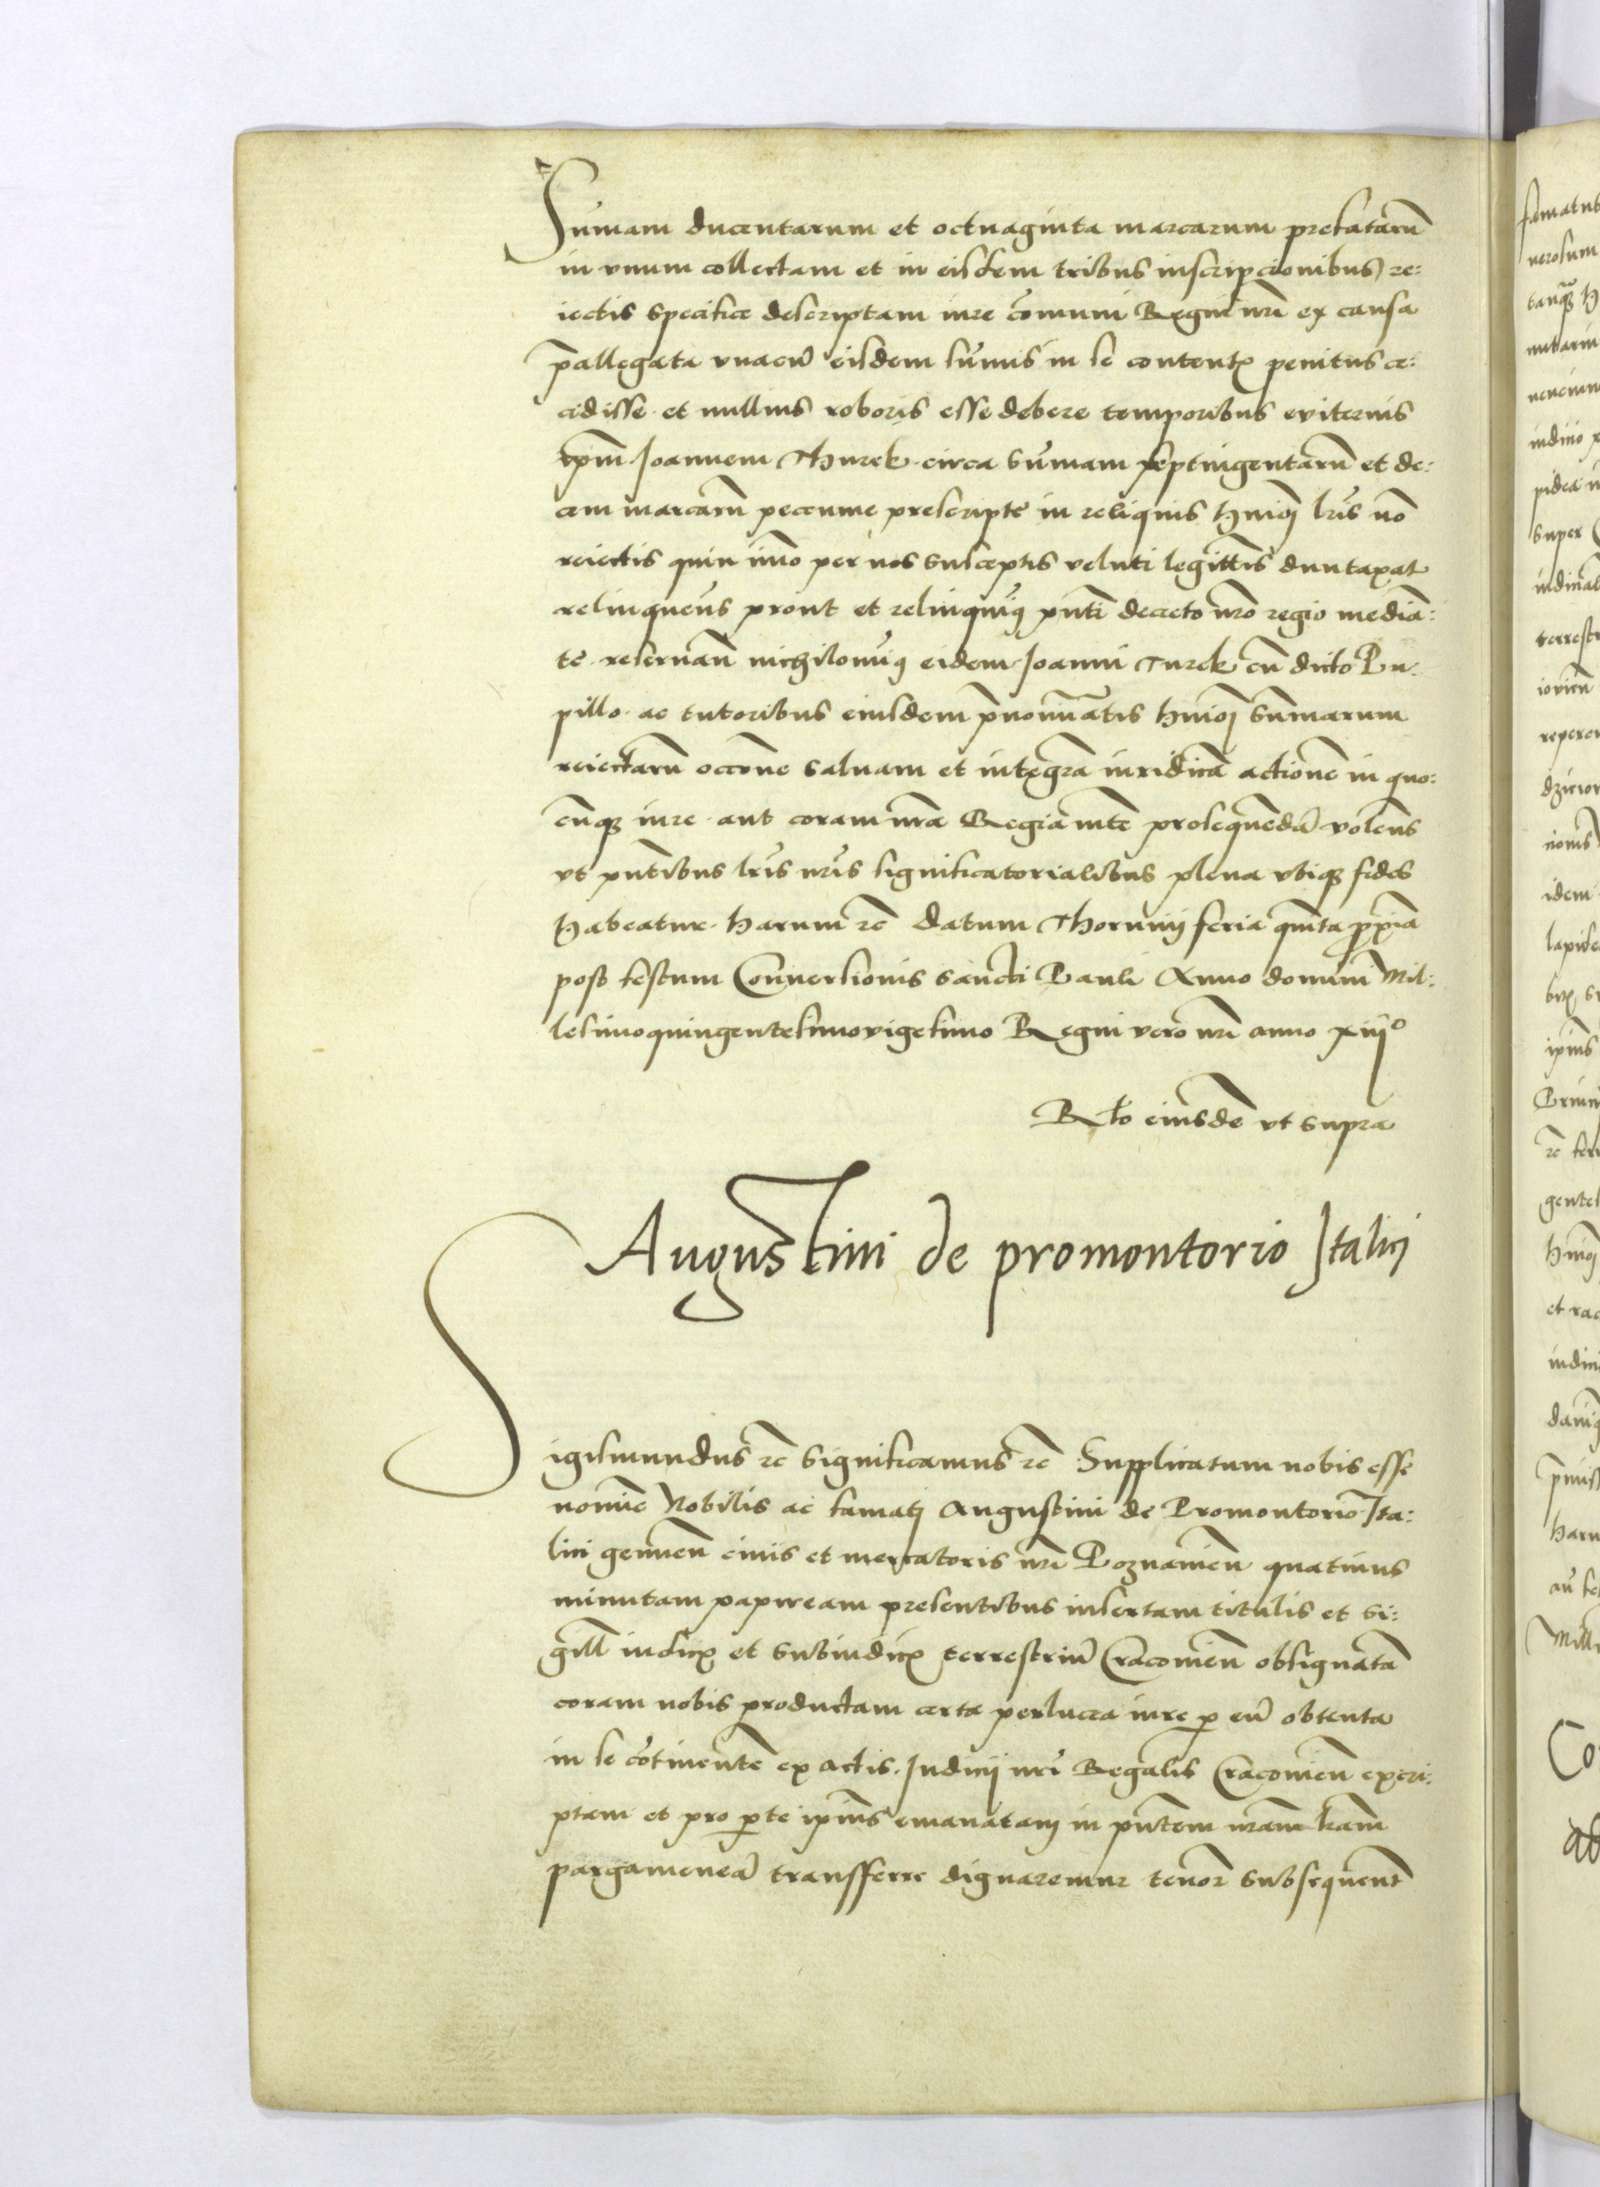 Sumam ducentarum et octuaginta marcarum prefatarū
in vnum collectam et in eisdem tribus inscripcionibus re:
iectis specifice descriptam iure cōmuni Regni nr̄i ex causa
p̄allegata vnacū eisdem sum̄is in se content̄ penitus ce:
cidisse et nullius roboris esse debere temporibus eviternis
ip̄m Joannem Thurek circa sum̄am septingentarū et de:
cem marcarū pecunie prescripte in reliquis hmōi lr̄is nō
reiectis quin im̄o per nos susceptis veluti legittīs duntaxat
relinquens prout et relinquim9 pn̄ti decreto nr̄o regio mediā:
te reseruan̄ nichilomin9 eidem Joanni Turek cū dicto Pu:
pillo ac tutoribus eiusdem p̄nominatis hmōi sum̄arum
reiectarū occōne saluam et integrā iuridicā actionē in quo:
cūq3 iure aut coram nr̄a Regia mte prosequendā volens
vt pn̄tibus lr̄is nr̄is significatorialibus plena vbiq3 fides
habeatur harum rē datum Thorunij feria quīta proxīa
post festum Conuersionis sancti Pauli Anno domini Mil:
lesimoquingentesimovigesimo Regni vero nr̄i anno xiiij°
Rlo eiusdē vt supra
Augustini de promontorio Italici
Sigismundus rē Significamus rē Supplicatum nobis esse
nomīe Nobilis ac famati Augustini de Promontorio Ita:
lici genuen̄ ciuis et mercatoris nr̄i Poznanien̄ quatinus
minutam papiream presentibus insertam titulis et si:
gill̄ iudic̄ et subiudic̄ terrestriū Cracouien̄ obsignatā
coram nobis productam certa perlucra iure p eū obtenta
in se cōtinentē ex actis Judicij nr̄i Regalis Cracouien̄ excri:
ptam et pro pte ip̄ius emanatam in pn̄tem nr̄am lr̄am
pargameneā transferre dignaremur tenor̄ subsequent̄